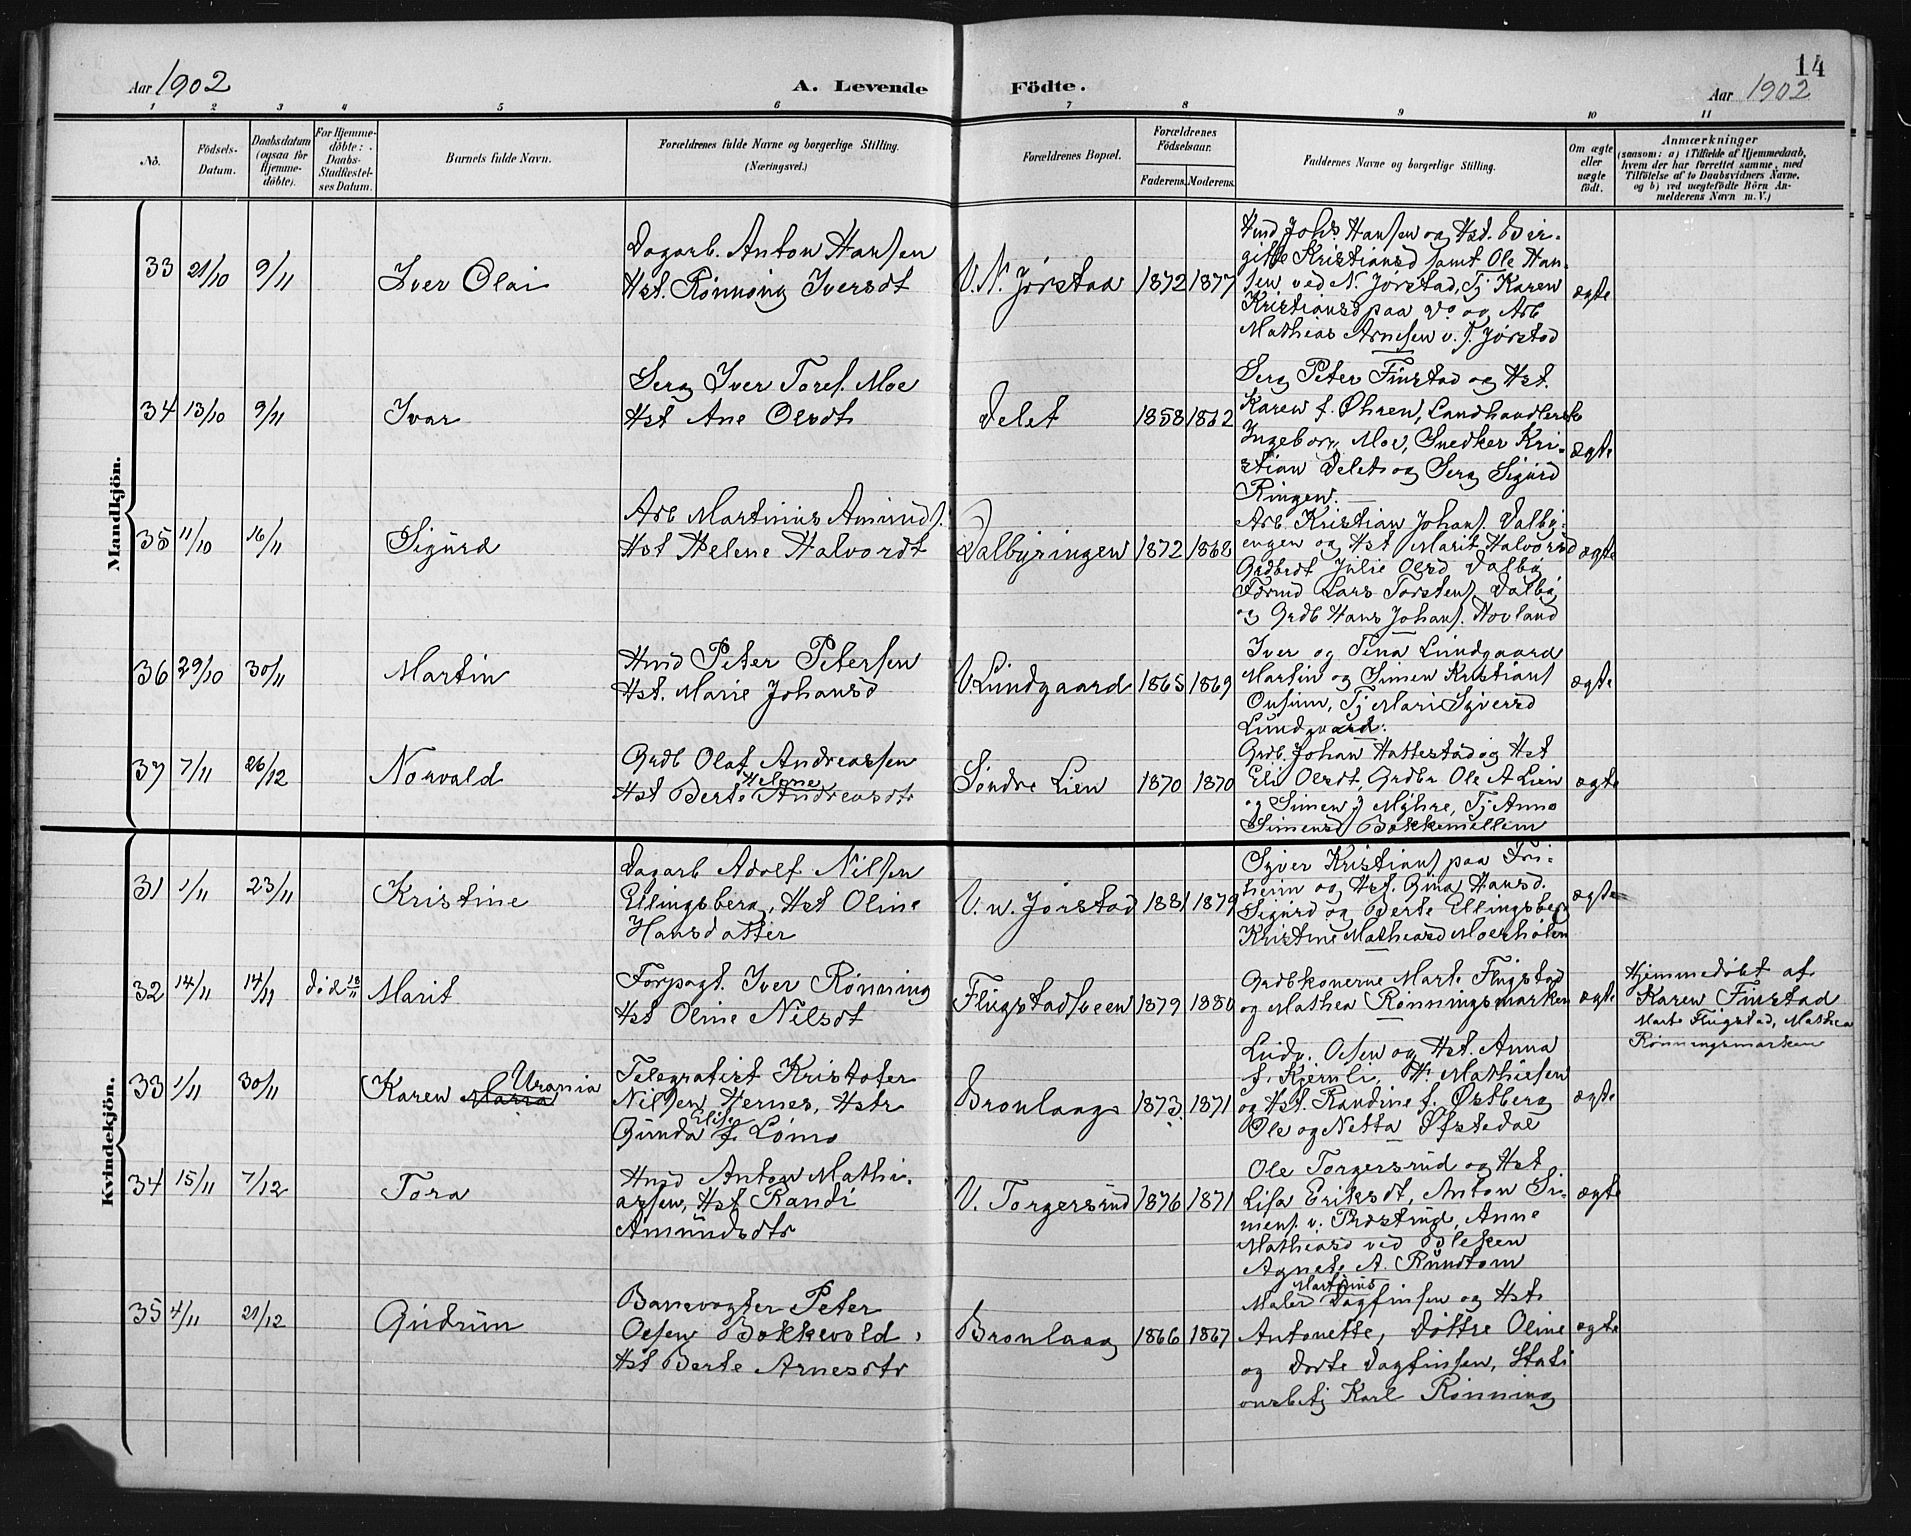 Aar 1902
A. Levende
Födte.
14
Aar 1902
1 2 3 4 5 6 7 8 9 10 11
No.
Födsels-Datum.
Daabsdatum (ogsaa for Hjemme-döbte).
For Hjemme-döbte: Daabs-Stadfæstel-ses Datum.
Barnets fulde Navn.
Forældrenes fulde Navne og borgerlige Stilling.
(Næringsvei.)
Forældrenes Bopæl.
Forældrenes Födselsaar.
Faderens. Moderens.
Faddernes Navne og borgerlige Stilling.
Om ægte eller uægte födt.
Anmærkninger
(saasom: a) i Tilfælde af Hjemmedaab,
hvem der har forrettet samme, med
Tilföielse af to Daabsvidners Navne,
og b) ved uægtefödte Börn An-
melderens Navn m. V.)
Mandkjön.
33 21/10 9/11 Iver Olai
Dagarb. Anton Hansen
Hst. Rønnøug Iversdt
V. N. Jørstad 1872 1877
Hmd Johs. Hansen og Hst.
Kristiansd samt Ole Han-
sen ved N. Jørstad, Tj Karen
Kristiansd paa do og Arb
Mathias Arnesen v. S. Jørstad
ægte
34 13/10 9/11 Ivar
Serg Iver Tores. Moe
Hst Ane Olsdt
Delet 1858 1862
Serg Peter Finstad og Hst.
Karen f. Øhren, Landhandlerske
Ingeborg Moe, Snedker Kri-
stian Delet og Serg Sigurd
Ringen.
ægte
35 11/10 16/11 Sigurd
Arb Martinius Amunds.
Hst Helene Halvordt
Dalbyringen 1872 1868
Arb. Kristian Johans. Dalby-
engen og Hst Marit Halvorsd
Grdbrdt Julie Olsd Dalby
Formd Lars Torstens. Dalby
og Grdb Hans Johans. Hovland
ægte
36 29/10 30/11 Martin
Hmd Peter Petersen
Hst. Marie Johansd
V. Lundgaard 1865 1869
Iver og Tina Lundgaard
Martin og Simen Kristians
Onsum, Tj Mari Syversd
Lundgaard.
ægte
37 7/11 26/12 Norvald
Grdb Olaf Andreassen
Hst Berte Helene Andreasdtr
Søndre Lien 1870 1870
Grdb. Johan Hattestad og Hst
Eli Olsdt, Grdbr Ole A Lien
og Simen J Myhre, Tj Anna
Simensd Bakkemellem
ægte
Kvindekjön.
31 1/11 23/11 Kristine
Dagarb Adolf Nilsen
Ellingsberg, Hst Oline
Hansdatter
V. n. Jørstad 1881 1879
Syver Kristians paa Fri-
heim og Hst. Gina Hansd.
Sigurd og Berte Ellingsberg
Kristine Mathiasd Moerholen
ægte
32 14/11 14/11 død 18/11 Marit
Forpagt. Iver Rønning
Hst Oline Nilsdt
Flugstadsveen 1879 1880
Grdbkonerne Marte Flugstad
og Mathea Rønningsmarken
ægte
Hjemmedøbt af
Karen Finstad
Marte Flugstad, Mathea
Rønningsmarken
33 1/11 30/11 Karen Maria Urania
Telegrafist Kristofer
Nilsen Hernes, Hstr
Gunda Elise f. Lømo
Bronlaag 1873 1871
Ludv. Olsen og Hst. Anna
f. Kjernli, Hr Mathiesen
og Hst. Randine f. Østberg
Ole og Netta Øfstedal
ægte
34 15/11 7/12 Tora
Hmd Anton Mathi-
assen, Hst Randi
Amundsdtr
V. Torgersrud 1876 1871
Ole Torgersrud og Hst
Lisa Eriksdt, Anton Si-
mens. v. Prøstrud, Anne
Mathiasd ved
Agnete A. Rundtom
ægte
35 4/11 21/12 Gudrun
Banevogter Peter
Olsen Bakkevold,
Hst Berte Arnesdtr
Bronlaag 1866 1867
Maler Martinus Dagfinsen og Hstr
Antonette, Døttre Oline
og Dorte Dagfinsen, Stati
onsbetj Karl Rønning
ægte